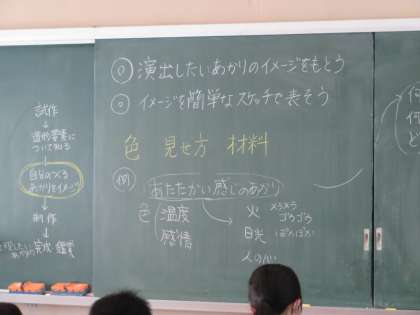 試作
造形要素に
ついて知る
自分のつくる
あかりをイメージ
制作
完成 鑑賞
◎ 演出したいあかりのイメージをもとう
◎ イメージを簡単なスケッチで表そう
色 見せ方 材料
例 あたたかい感じのあかり
色 温度 火 メラメラ
ゴロゴロ
感情 日光 ぽかぽか
人の心
何